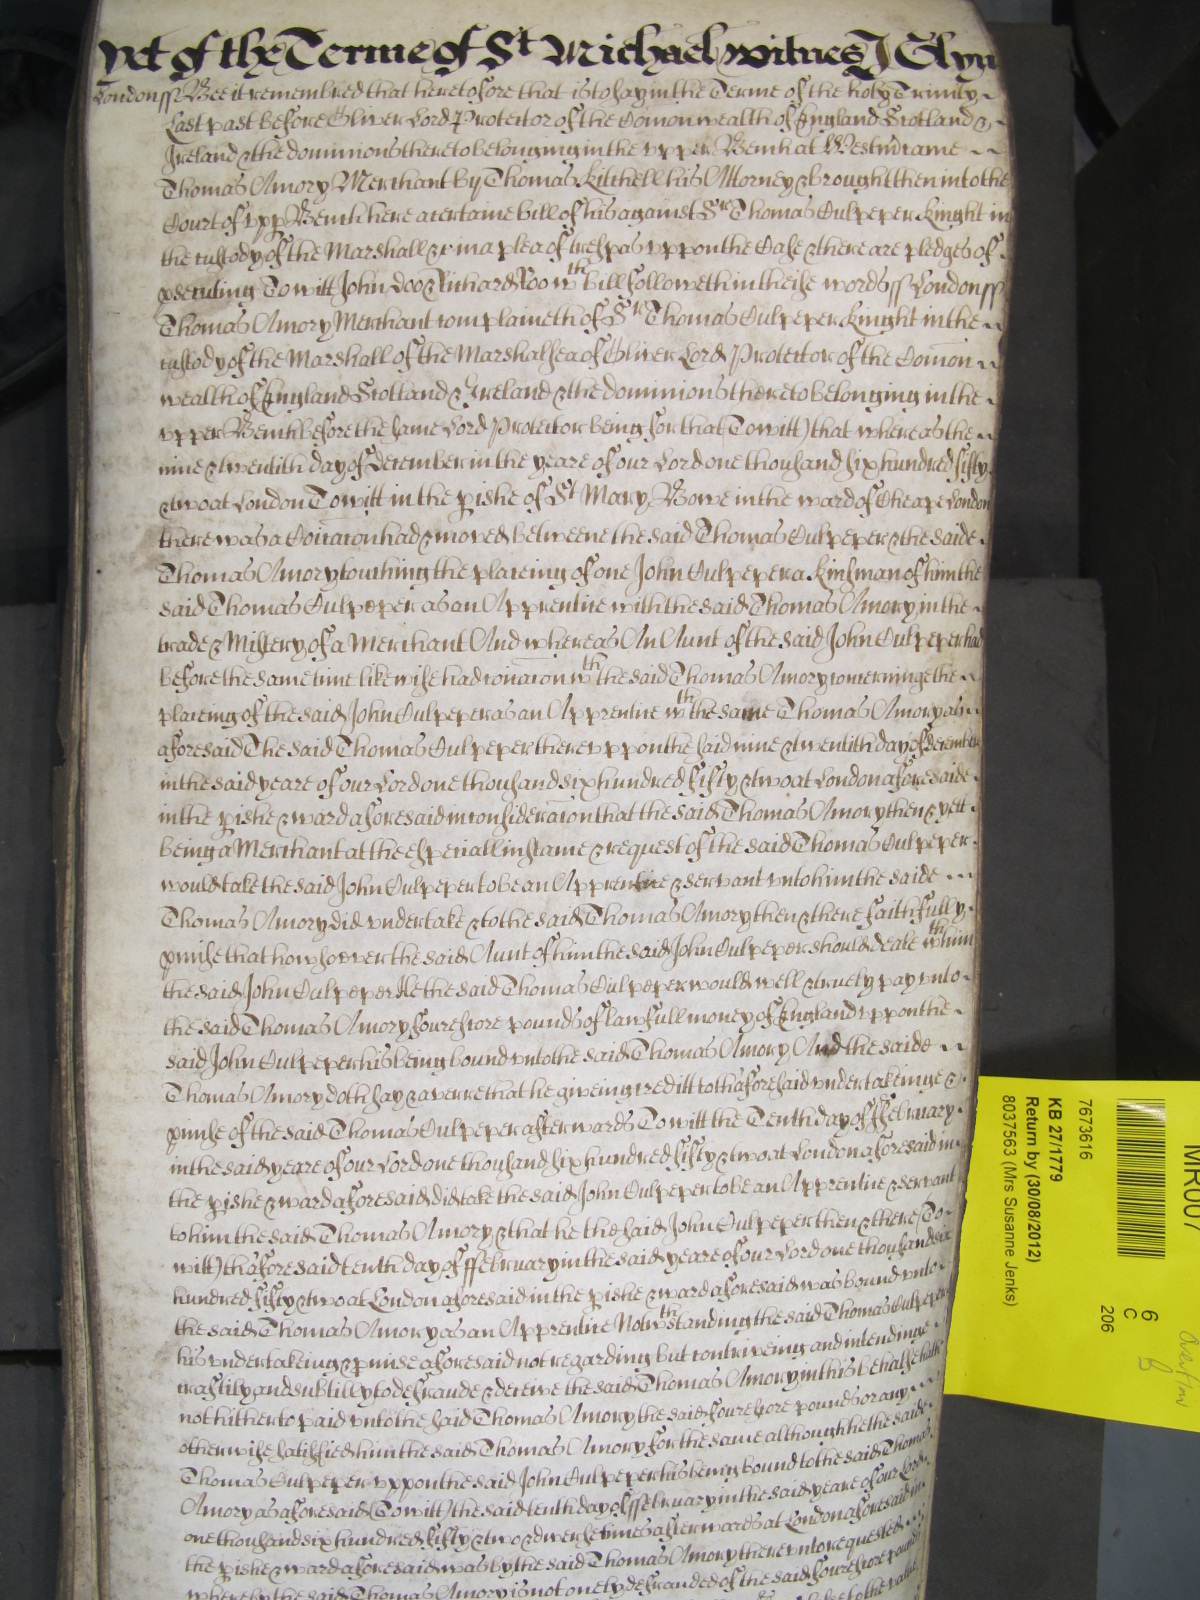 yet of the Terme of St Michael witnes J Glyn
London ss Bee it remembred that heretofore that is to say in the Terme of the holy Trinity
Last past before Oliver Lord Protector of the Comonwealth of England Scotland &
Ireland & the dominions thereto belonging in the upper Bench at Westm
Thomas Amory Merchant by Thomas Kitchell his Attorney & brought then into the
Court of upp Bench here a certaine bill of his against Sr Thomas Culpeper Knight in
the custody of the Marshall &c in a plea of trespas uppon the Case & there are pledges of
psecuting To witt John Doo & Richard Roo wth bill followeth in theise words ss London ss
Thomas Amory Merchant complaineth of Sr Thomas Culpeper Knight in the
custody of the Marshall of the Marshalsea of Oliver Lord Protector of the Comon
wealth of England Scotland & Ireland & the dominions thereto belonging in the
upper Bench before the same Lord Protector being for that (To witt) that whereas the
nine & twentith day of December in the yeare of our Lord one thousand six hundred fifty
& two at London To witt in the pishe of St Mary Bowe in the ward of Cheape London
there was a Coicacion had & moved betweene the said Thomas Culpeper & the saide
Thomas Amory touching the placeing of one John Culpeper a kinsman of him the
said Thomas Culpeper as an Apprentice with the said Thomas Amory in the
trade & Mistery of a Merchant And whereas An Aunt of the said John Culpeper had
before the same time likewise had coicacion wth the said Thomas Amory concerninge the
placeing of the said John Culpeper as an Apprentice wth the same Thomas Amory as
aforesaid The said Thomas Culpeper thereuppon the said nine & twentith day of december
in the said yeare of our Lord one thousand six hundred fifty & two at London aforesaide
in the pishe & ward aforesaid in consideracion that the said Thomas Amory then & yett
being a Merchant at the especiall instance & request of the said Thomas Culpeper
would take the said John Culpeper to be an Apprentice & servant unto him the saide
Thomas Amory did undertake & to the said Thomas Amory then & there faithfully
pmise that howsoever the said Aunt of him the said John Culpeper should deale wth him
the said John Culpeper He the said Thomas Culpeper would well & truely pay unto
the said Thomas Amory fourescore pounds of lawfull money of England uppon the
said John Culpeper his being bound unto the said Thomas Amory And the saide
Thomas Amory doth say & averre that he giveing creditt to thaforesaid undertakeinge &
pmise of the said Thomas Culpeper afterwards To witt the Tenth day of ffebruary
in the said yeare of our Lord one thousand six hundred fifty & two at London aforesaid in
the pishe & ward aforesaid did take the said John Culpeper to be an Apprentice & servant
to him the said Thomas Amory & that he the said John Culpeper then & there (To
witt) thaforesaid tenth day of ffebruary in the said yeare of our Lord one thousand six
hundred fifty & two at London aforesaid in the pishe & ward aforesaid was bound unto
the said Thomas Amory as an Apprentice Notwthstanding the said Thomas Culpeper
his undertakeing & pmise aforesaid not regarding but contriveing and intendinge
craftily and subtilly to defraude & deceive the said Thomas Amory in this behalfe hath
not hitherto paid unto the said Thomas Amory the said fourescore pounds or any
otherwise satisfied him the said Thomas Amory for the same although he the saide
Thomas Culpeper uppon the said John Culpeper his being bound to the said Thomas
Amory as aforesaid (To witt) the said tenth day of ffebruary in the said yeare of our Lord
one thousand six hundred fifty & two & diverse times afterwards at London aforesaid in
the pishe & ward aforesaid was by the said Thomas Amory thereunto requested
whereby the said Thomas Amory is not onely defrauded of the said fourescore pounds
to the value
MR007
7673616
KB 27/1779
Return by (30/08/2012)
8037563 (Mrs Susanne Jenks)
6
C
206
Overflow